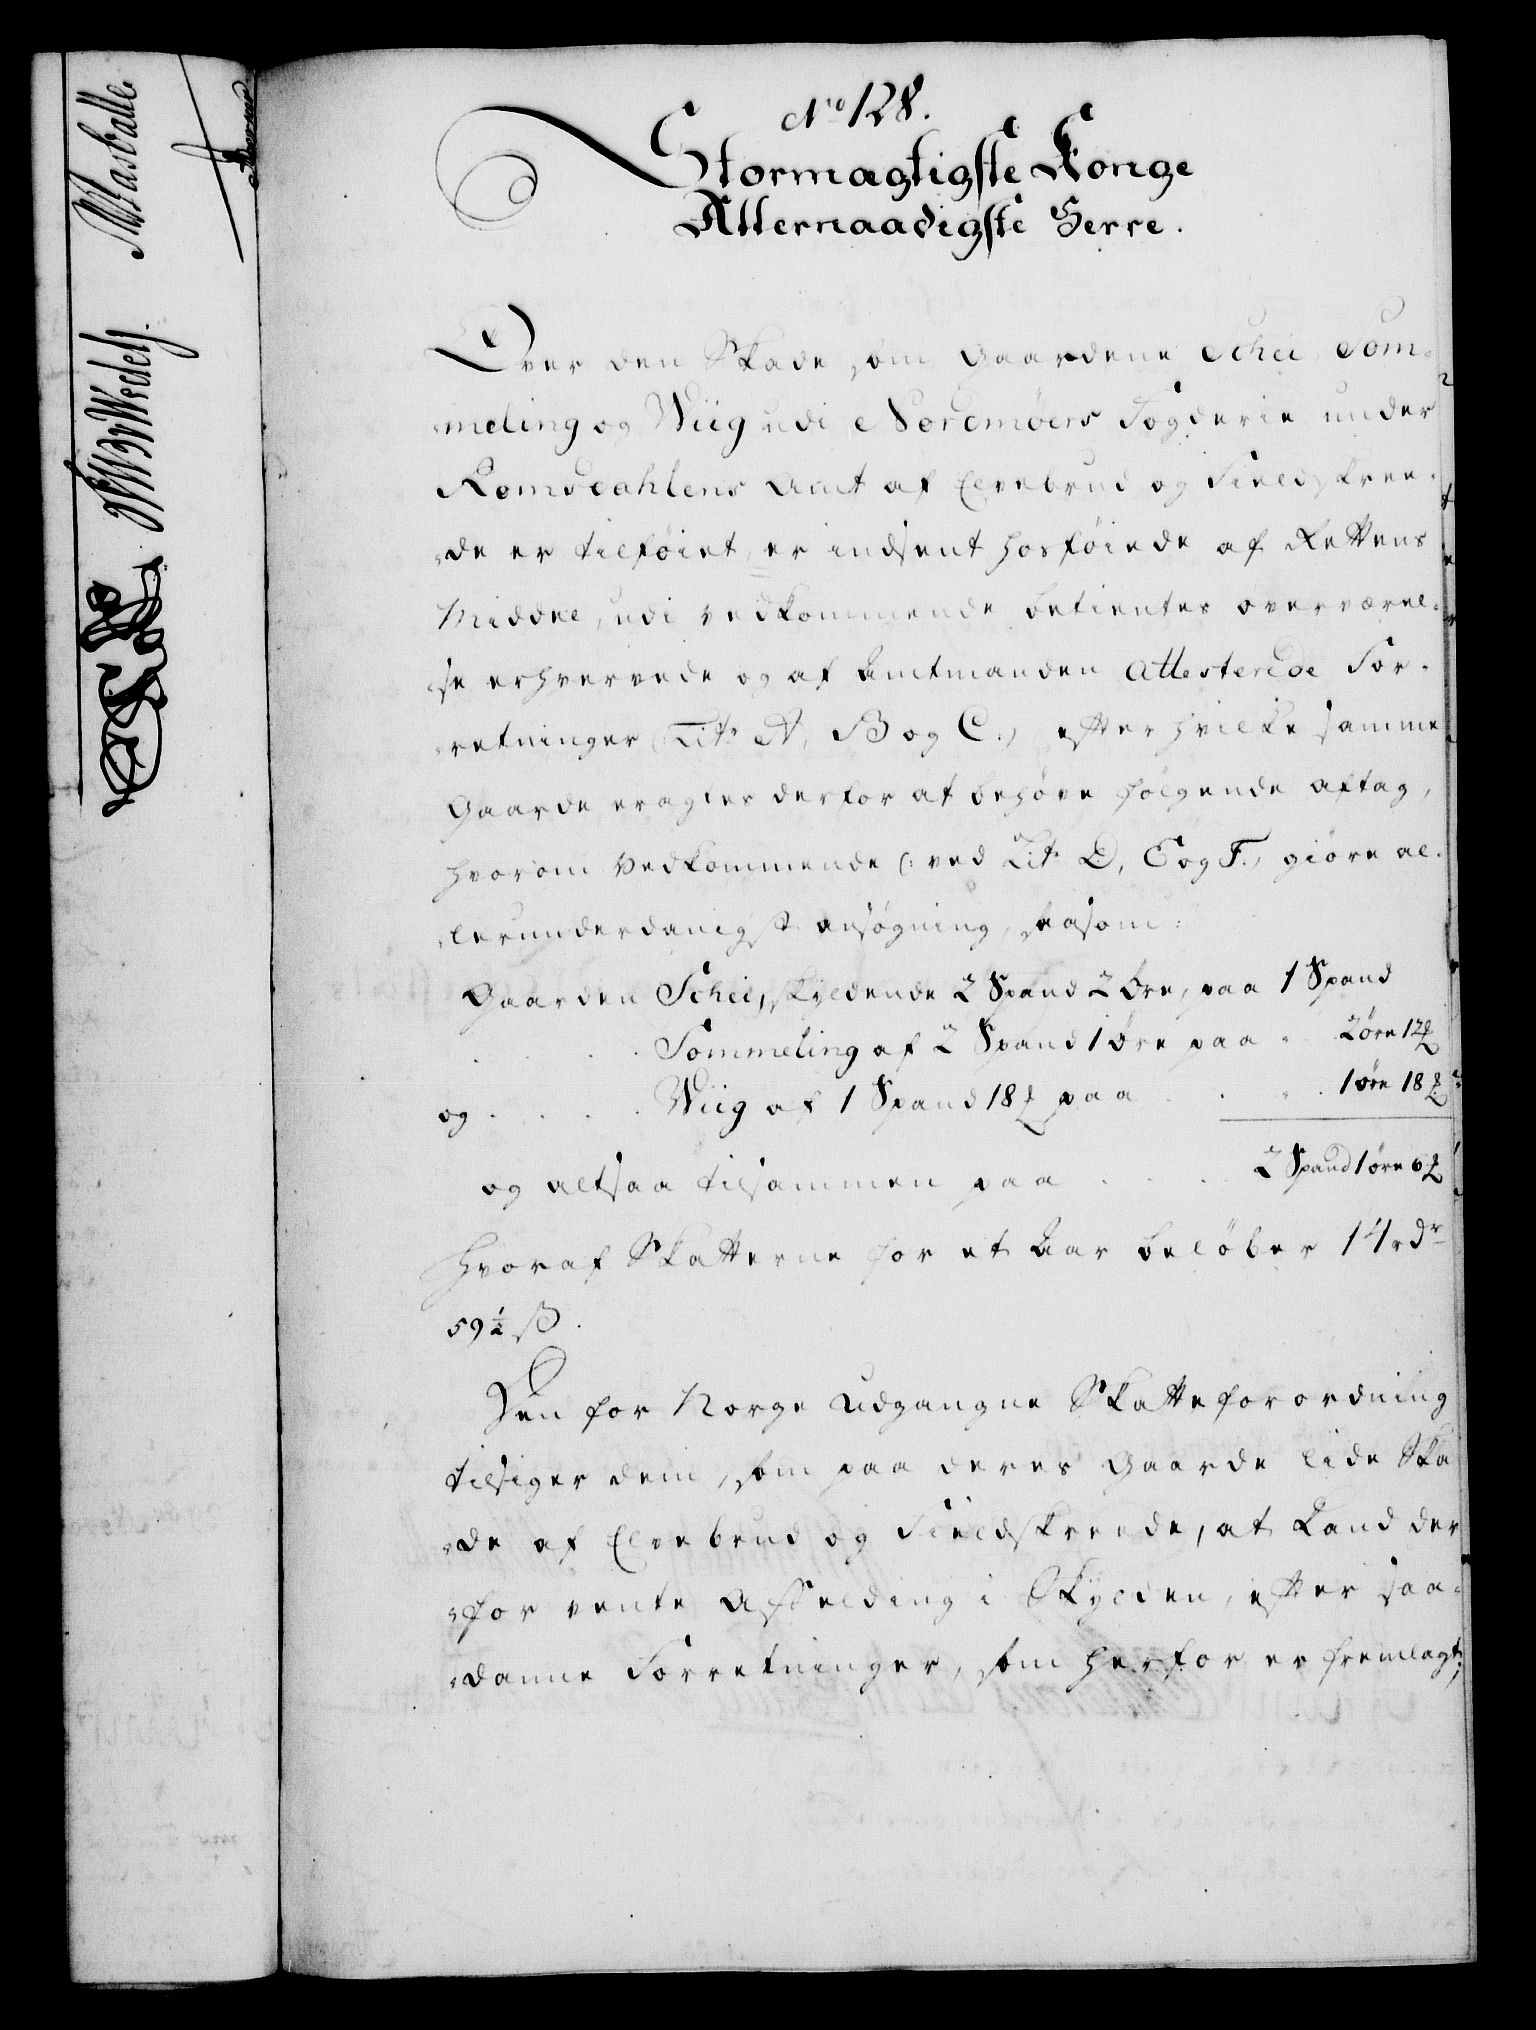 No 128.
Stormægtigste Konge
Allernaadigste Herre.
Over den Skade som Gaardene Schei, Som-
meling og Wiig udi Nordmøers Fogderie under
Romsdahlens Amt af Elvebrud og Fieldskree-
de er tilføiet, er indsent hosføiede af Rettens
Middel, udi vedkommende betientes overværel-
se erhvervede og af Amtmanden Attesterede For-
retninger (Lit. A, B og C.) efter hvilke samme
Gaarde eragtes derfor at behøve følgende aftag,
hvorom Vedkommende (: ved Lit. D, E og F.) giøre al-
lerunderdanigst ansøgning, saasom:
Gaarden Schei, skyldende 2 Spand 2 Øre, paa 1 Spand
. . . . Sommeling af 2 Spand 1 Øre paa . 2 øre 12 ₰
og . . . . Wiig af 1 Spand 18 ₰ paa . . . . 1 øre 18 ₰
og altsaa tilsammen paa . . . . 2 Spand 1 øre 6 ₰
Hvoraf Skatterne for et Aar beløber 14 rdr
59 ½ ß.
Den for Norge udgangne Skatteforordning
tilsiger dem, som paa deres Gaarde lide Ska
de af Elvebrud og Fieldskreede, at Kand der
for vente Affelding i Skylden, efter saa-
danne Forretninger, som herfor er fremlagt;
Masballe
Wedelj.